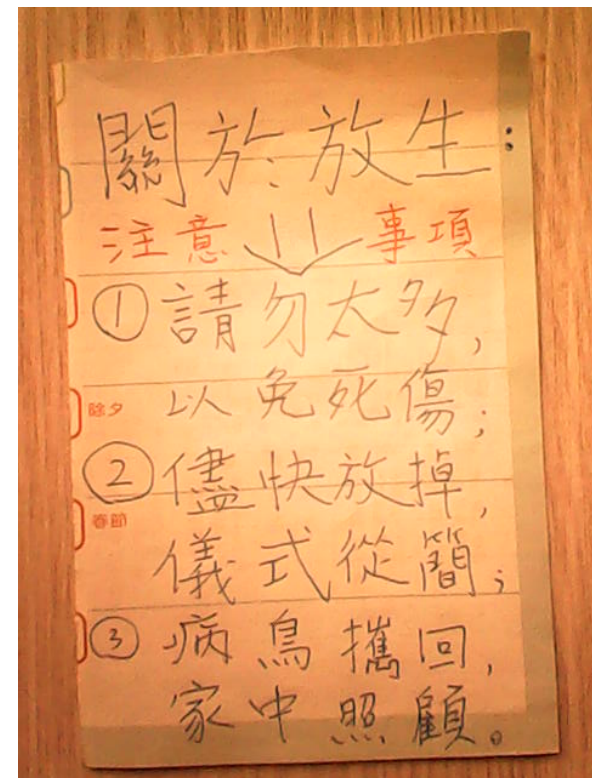 關於放生
注意 事項
①請勿太多,
除夕 以免死傷;
②儘快放掉,
春節
儀式從簡;
③病鳥攜回,
家中照顧。